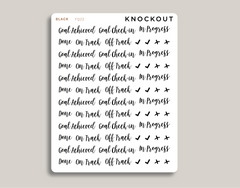 BLACK KNOCKOUT
Goal Achieved Goal Check-in In Progress
Done On Track Off Track ✓ ✓ ✗ ✗
Goal Achieved Goal Check-in In Progress
Done On Track Off Track ✓ ✓ ✗ ✗
Goal Achieved Goal Check-in In Progress
Done On Track Off Track ✓ ✓ ✗ ✗
Goal Achieved Goal Check-in In Progress
Done On Track Off Track ✓ ✓ ✗ ✗
Goal Achieved Goal Check-in In Progress
Done On Track Off Track ✓ ✓ ✗ ✗
Goal Achieved Goal Check-in In Progress
Done On Track Off Track ✓ ✓ ✗ ✗